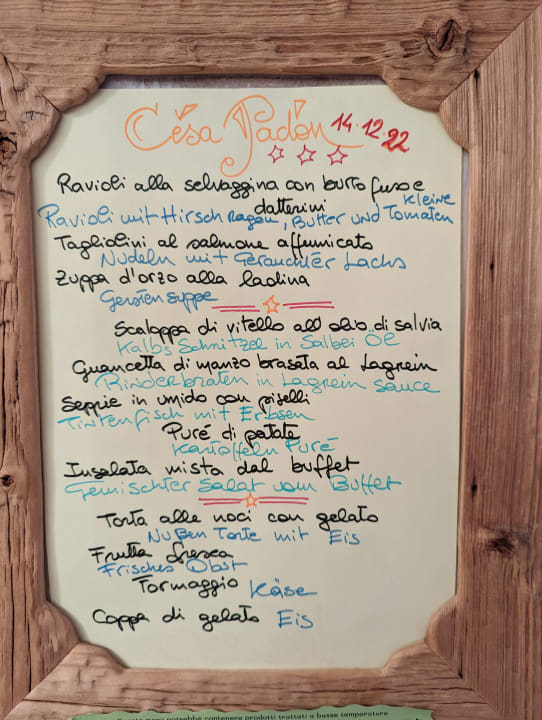 Césa Padón 14.12.22
Ravioli alla selvaggina con burro fuso e
datterini
Kleine
Ravioli mit Hirsch Ragou, Butter und Tomaten
Tagliolini al salmone affumicato
Nudeln mit Geräuchter Lachs
Zuppa d'orzo alla ladina
Gersten suppe
Scaloppa di vitello all'olio di salvia
Kalbs Schnitzel in Salbei Öl
Guancetta di manzo brasata al Lagrein
Rinderbraten in Lagrein sauce
Seppie in umido con piselli
Tintenfisch mit Erbsen
Puré di patate
Kartoffeln Puré
Insalata mista dal buffet
Gemischter Salat vom Buffet
Torta alle noci con gelato
Nußen Torte mit Eis
Frutta fresca
Frisches Obst
Formaggio Käse
Coppa di gelato Eis
potrebbe contenere prodotti trattati a basse temperature